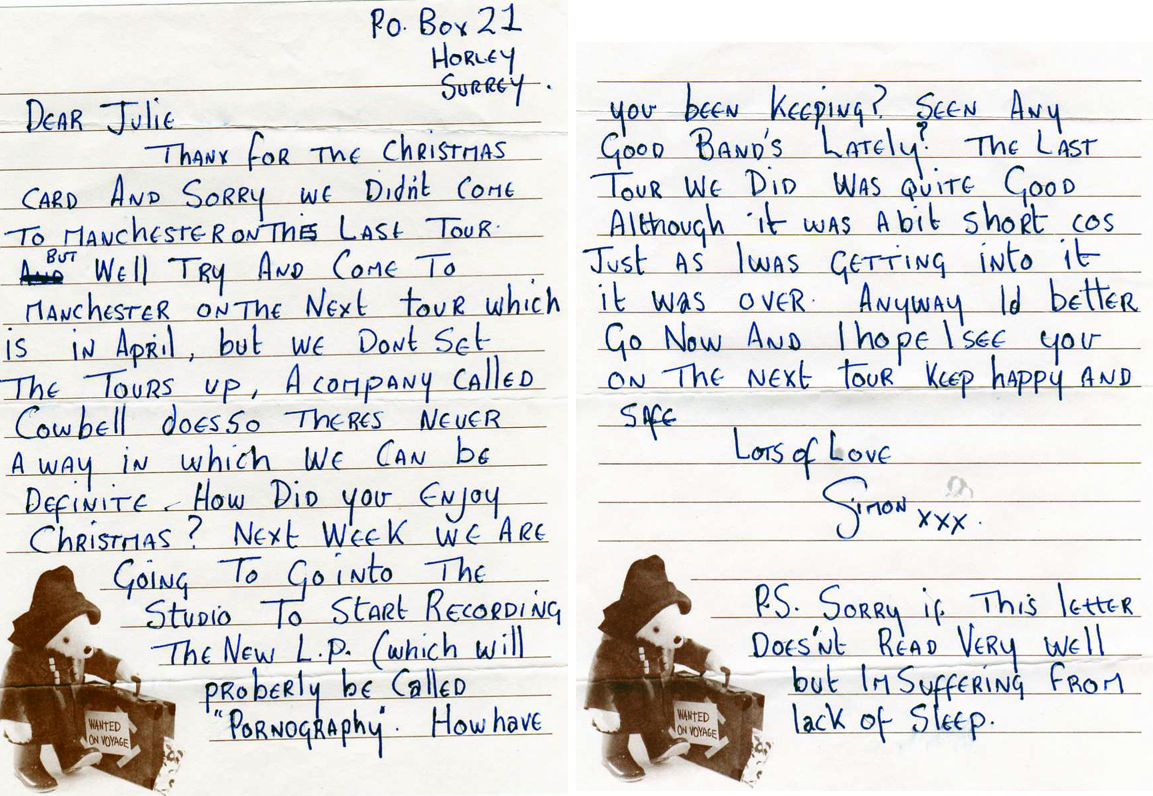 P.O. Box 21
HORLEY
SURREY.
DEAR Julie
THANX for THE CHRISTMAS
CARD AND SORRY WE Didn't COME
TO MANCHESTER ON THIS LAST TOUR.
BUT
WE'll TRY AND COME TO
MANCHESTER ON THE NEXT TOUR which
is in April, but WE DONT SET
THE TOURS UP, A COMPANY CALLED
COWbell does SO THERES NEVER
A WAY in which WE CAN be
DEFINITE. HOW DID you ENJOY
CHRISTMAS? NEXT WEEK WE ARE
GOING TO GO iNTO THE
STUDIO TO START RECORDING
THE NEW L.P. (which will
PROBERLY be CAllED
"PORNOGRAPHY". HOW have
WANTED
ON VOYAGE
you bEEN KEEPING? SEEN ANY
GOOD BAND'S LATELY? THE LAST
TOUR WE DID WAS QUITE GOOD
Although it WAS A bit short cos
JUST AS I WAS GETTING INTO it
it WAS OVER. ANYWAY Id better
GO NOW AND I hope I SEE you
ON THE NEXT TOUR KEEP happy AND
SAFE
LOTS of LOVE
SIMON xxx.
P.S. SORRY if THIS lETTER
DOES'NT READ VERY WEll
but IM SUFFERING FROM
lack of SlEEP.
WANTED
ON VOYAGE